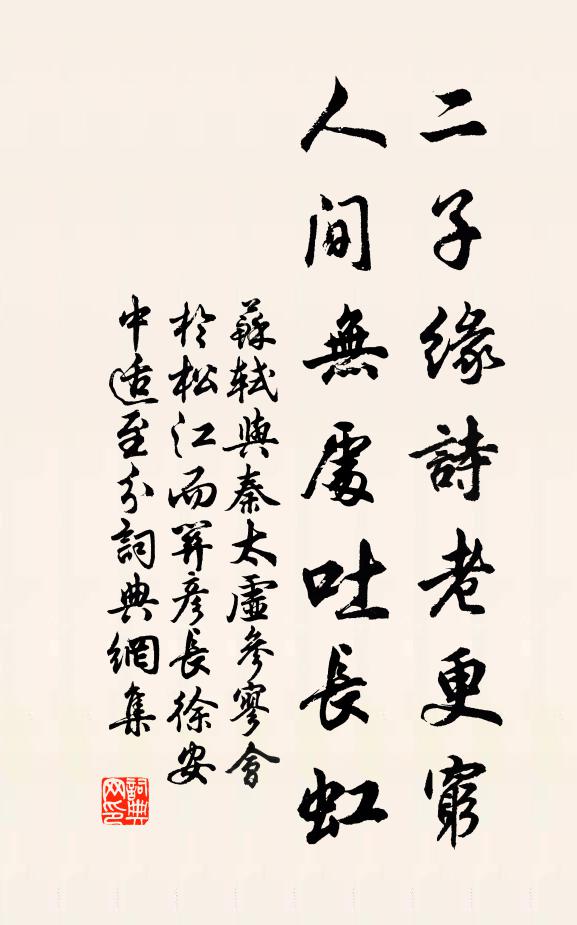 二子緣詩老更窮
人間無處吐長虹
蘇軾與秦太虛參寥會
於松江而關彥長徐安
中適至分詞典網集
詞典網印